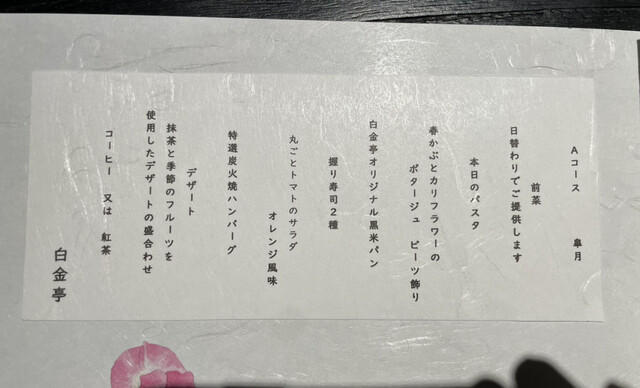 Aコース　皐月
前菜
日替わりでご提供します
本日のパスタ
春かぶとカリフラワーの
ポタージュ　ビーツ飾り
白金亭オリジナル黒米パン
握り寿司２種
丸ごとトマトのサラダ
オレンジ風味
特選炭火焼ハンバーグ
デザート
抹茶と季節のフルーツを
使用したデザートの盛合わせ
コーヒー　又は　紅茶
白金亭